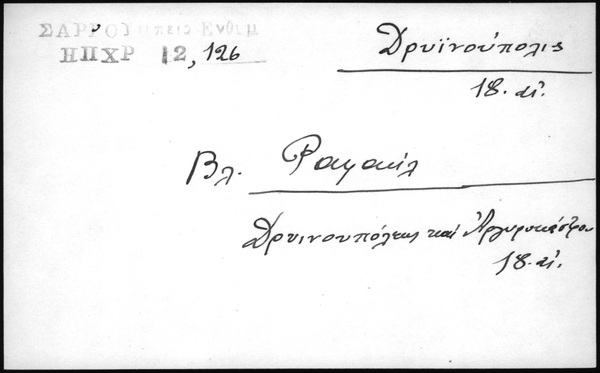 ΣΑΡΡΟΥ Ενθυμ
ΗΠΧΡ 12, 126
Δρυϊνούπολις
18. αἰ.
Βλ. Ραφαήλ
Δρυινουπόλεως καί Ἀργυροκάστρου
18. αἰ.